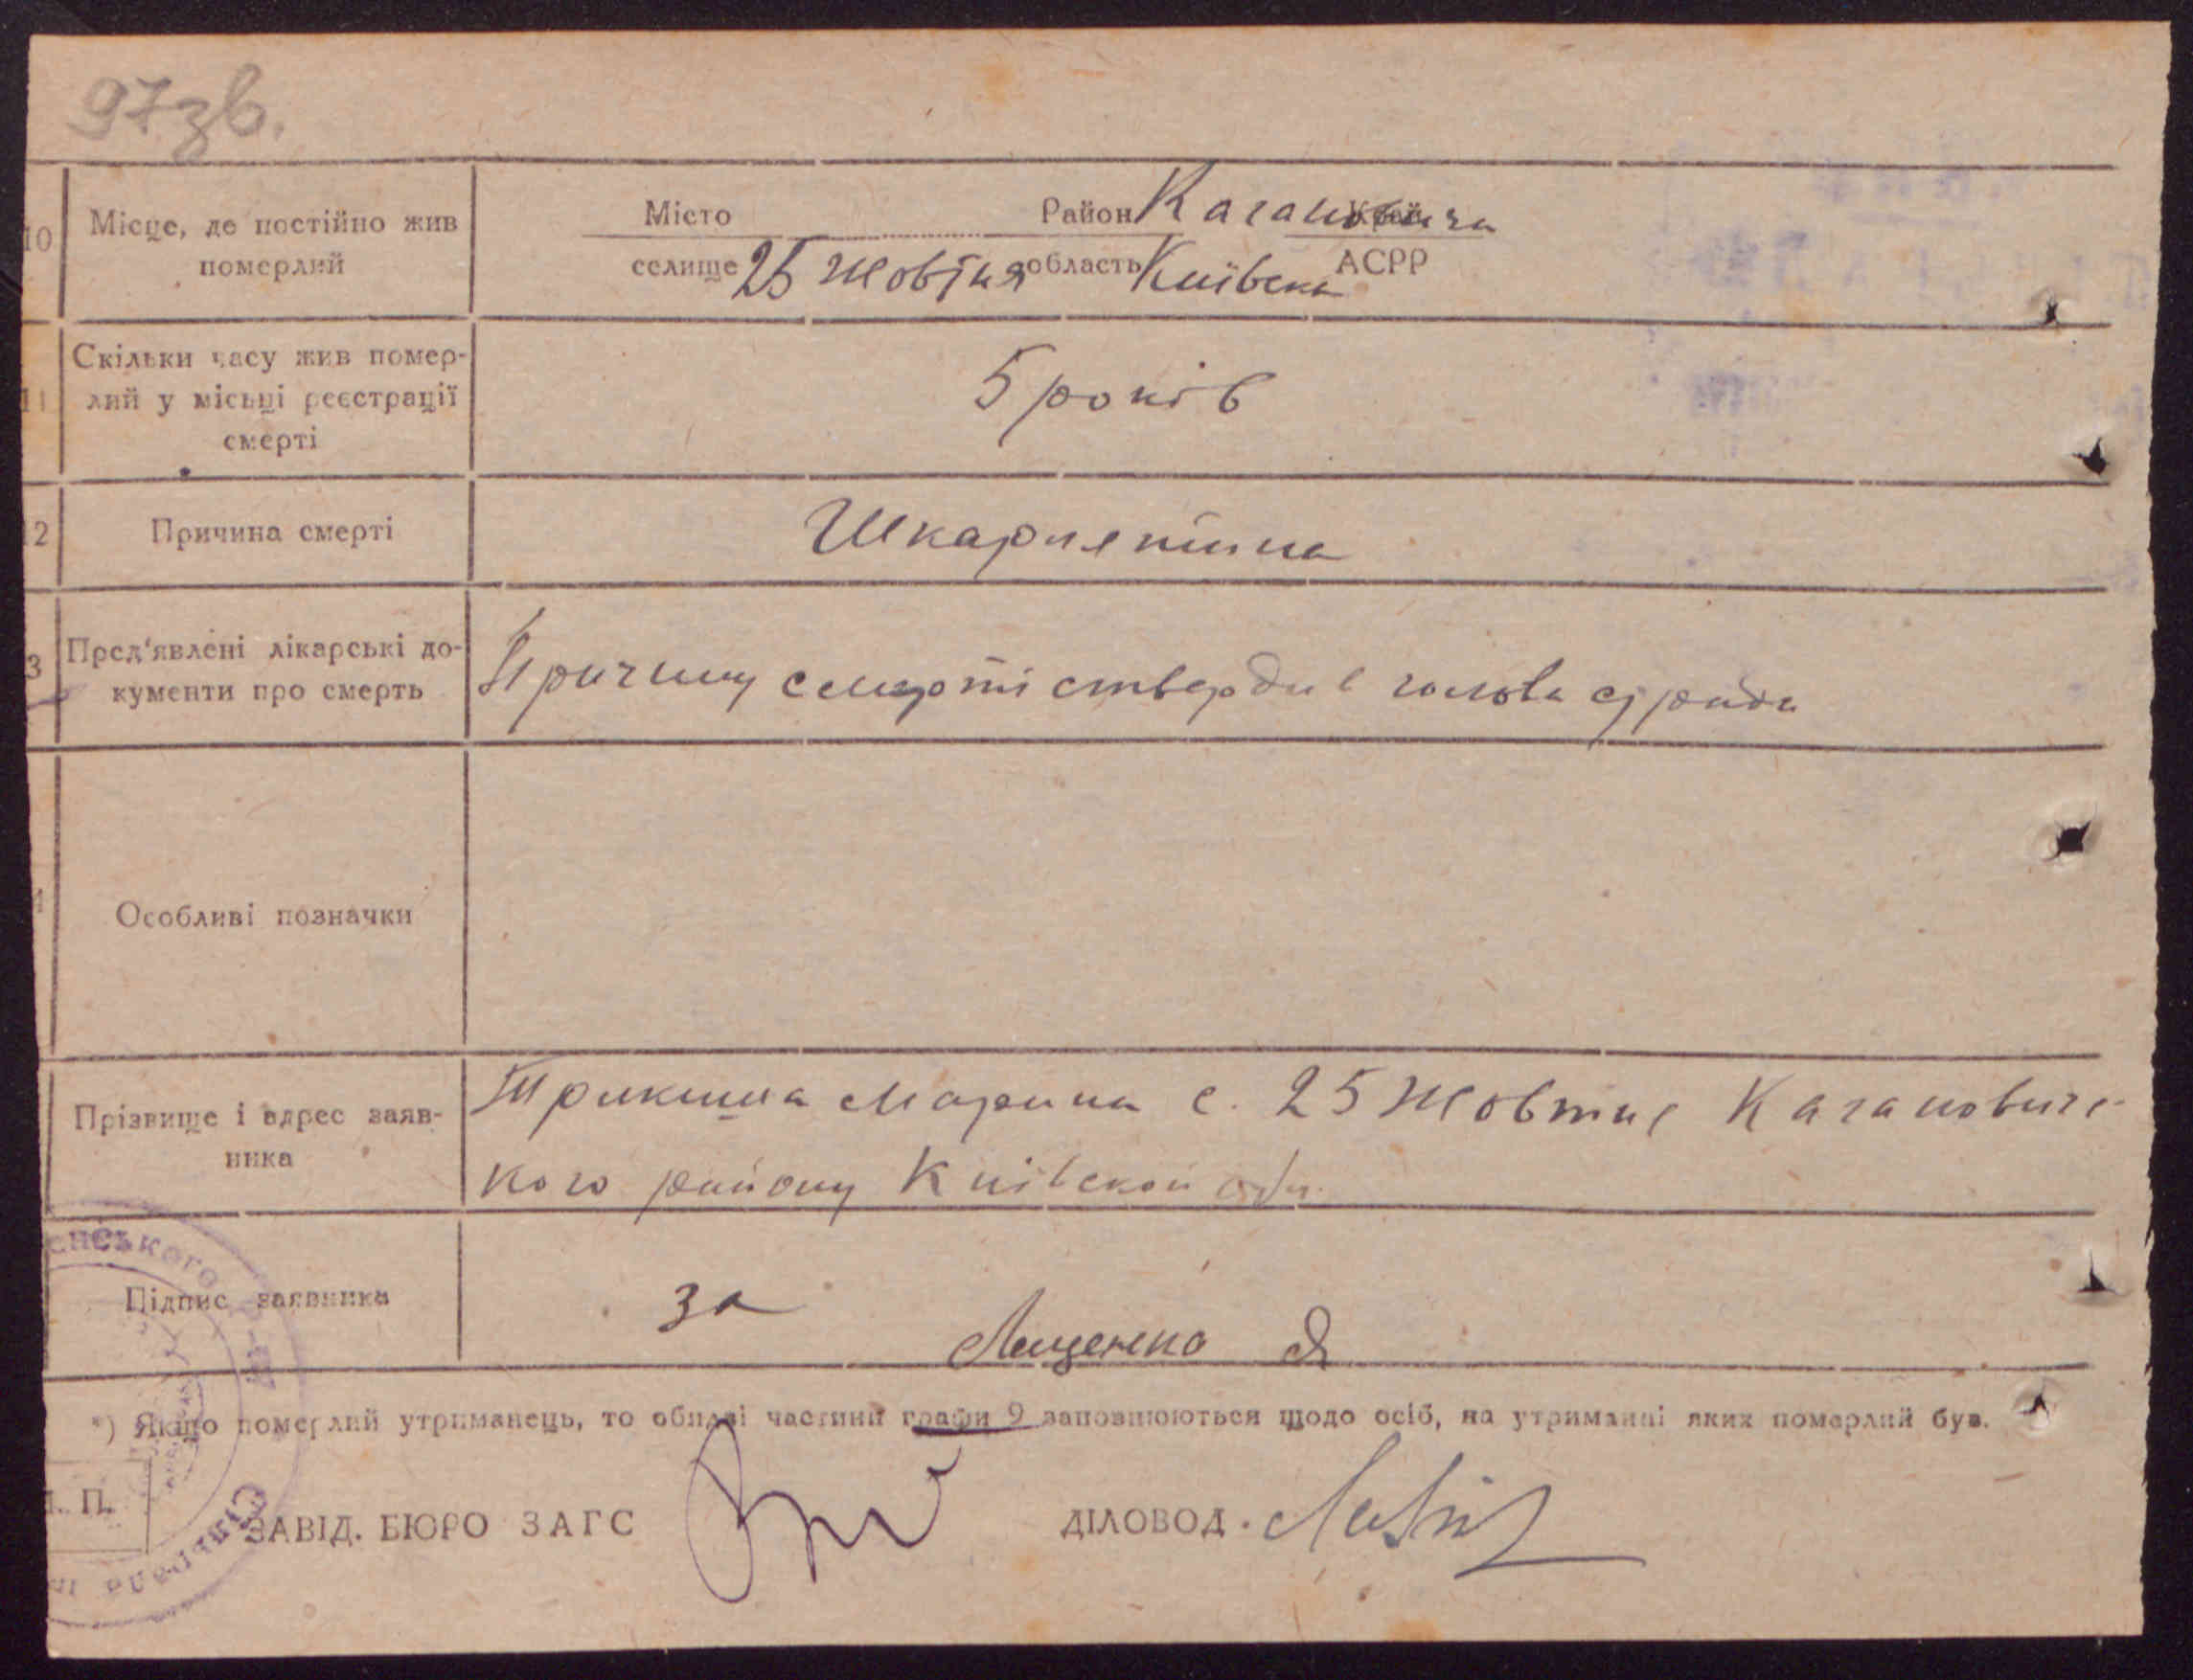 97зв.
10 Місце, де постійно жив померлий
Місто Район Кагановича Край
селище 25 Жовтня область Київська АСРР
11 Скільки часу жив померлий у місьці реєстрації смерті
5 років
2 Причина смерті
Шкарлятина
3 Пред'явлені лікарські документи про смерть
Причину смерті ствердив голова с/ради
Особливі позначки
Прізвище і адрес заявника
Марина с. 25 Жовтня Кагановичс-
кого району Київскої обл.
Підпис заявника
за
Лещенко Я
*) Якщо померлий утриманець, то обидві частини графи 9 заповнюються щодо осіб, на утриманні яких померлий був.
П.
ЗАВІД. БЮРО ЗАГС ДІЛОВОД.